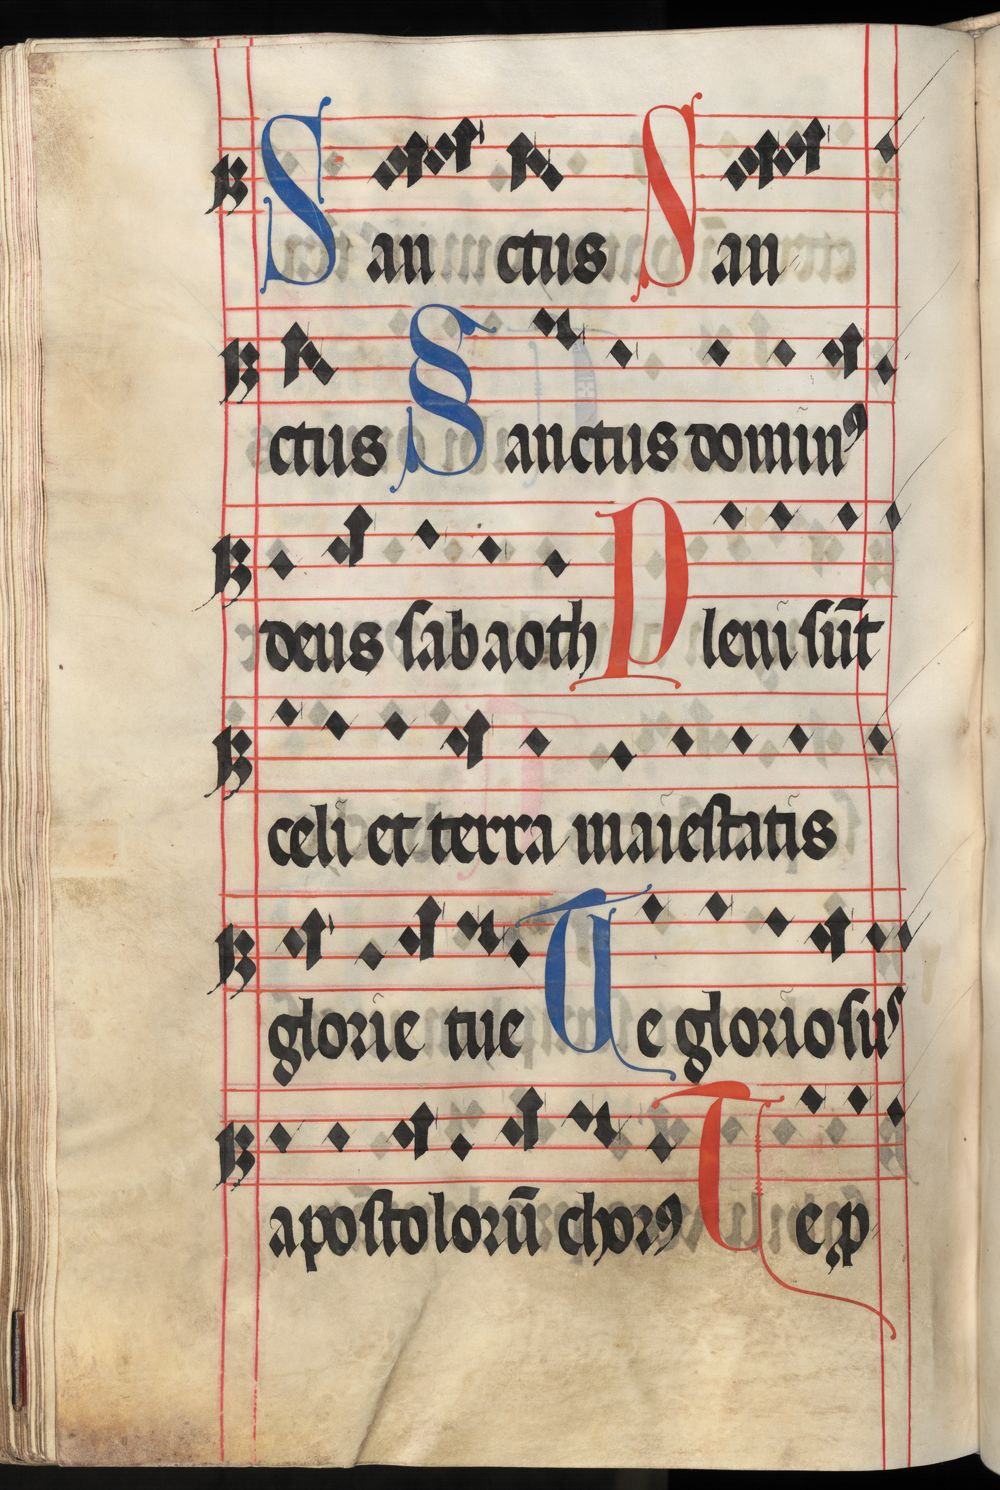 San ctus San
ctus Sanctus dominꝰ
deus sabaoth Pleni sūt
celi et terra maiestatis
glorie tue Te gloriosus
apostolorū chorꝰ Te ꝓ